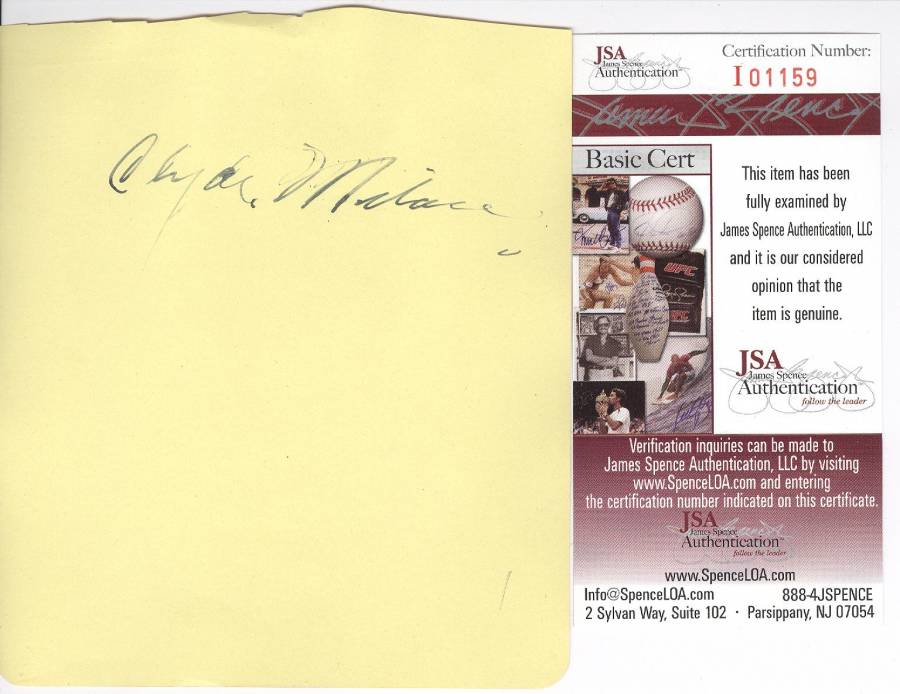 Clyde Milan
JSA
James Spence
Authentication
Certification Number:
I 01159
James Spence
Basic Cert
UFC
This item has been
fully examined by
James Spence Authentication, LLC
and it is our considered
opinion that the
item is genuine.
JSA
James Spence
Authentication
follow the leader
Verification inquiries can be made to
James Spence Authentication, LLC by visiting
www.SpenceLOA.com and entering
the certification number indicated on this certificate.
JSA
James Spence
Authentication™
follow the leader
www.SpenceLOA.com
Info@SpenceLOA.com 888-4JSPENCE
2 Sylvan Way, Suite 102 · Parsippany, NJ 07054